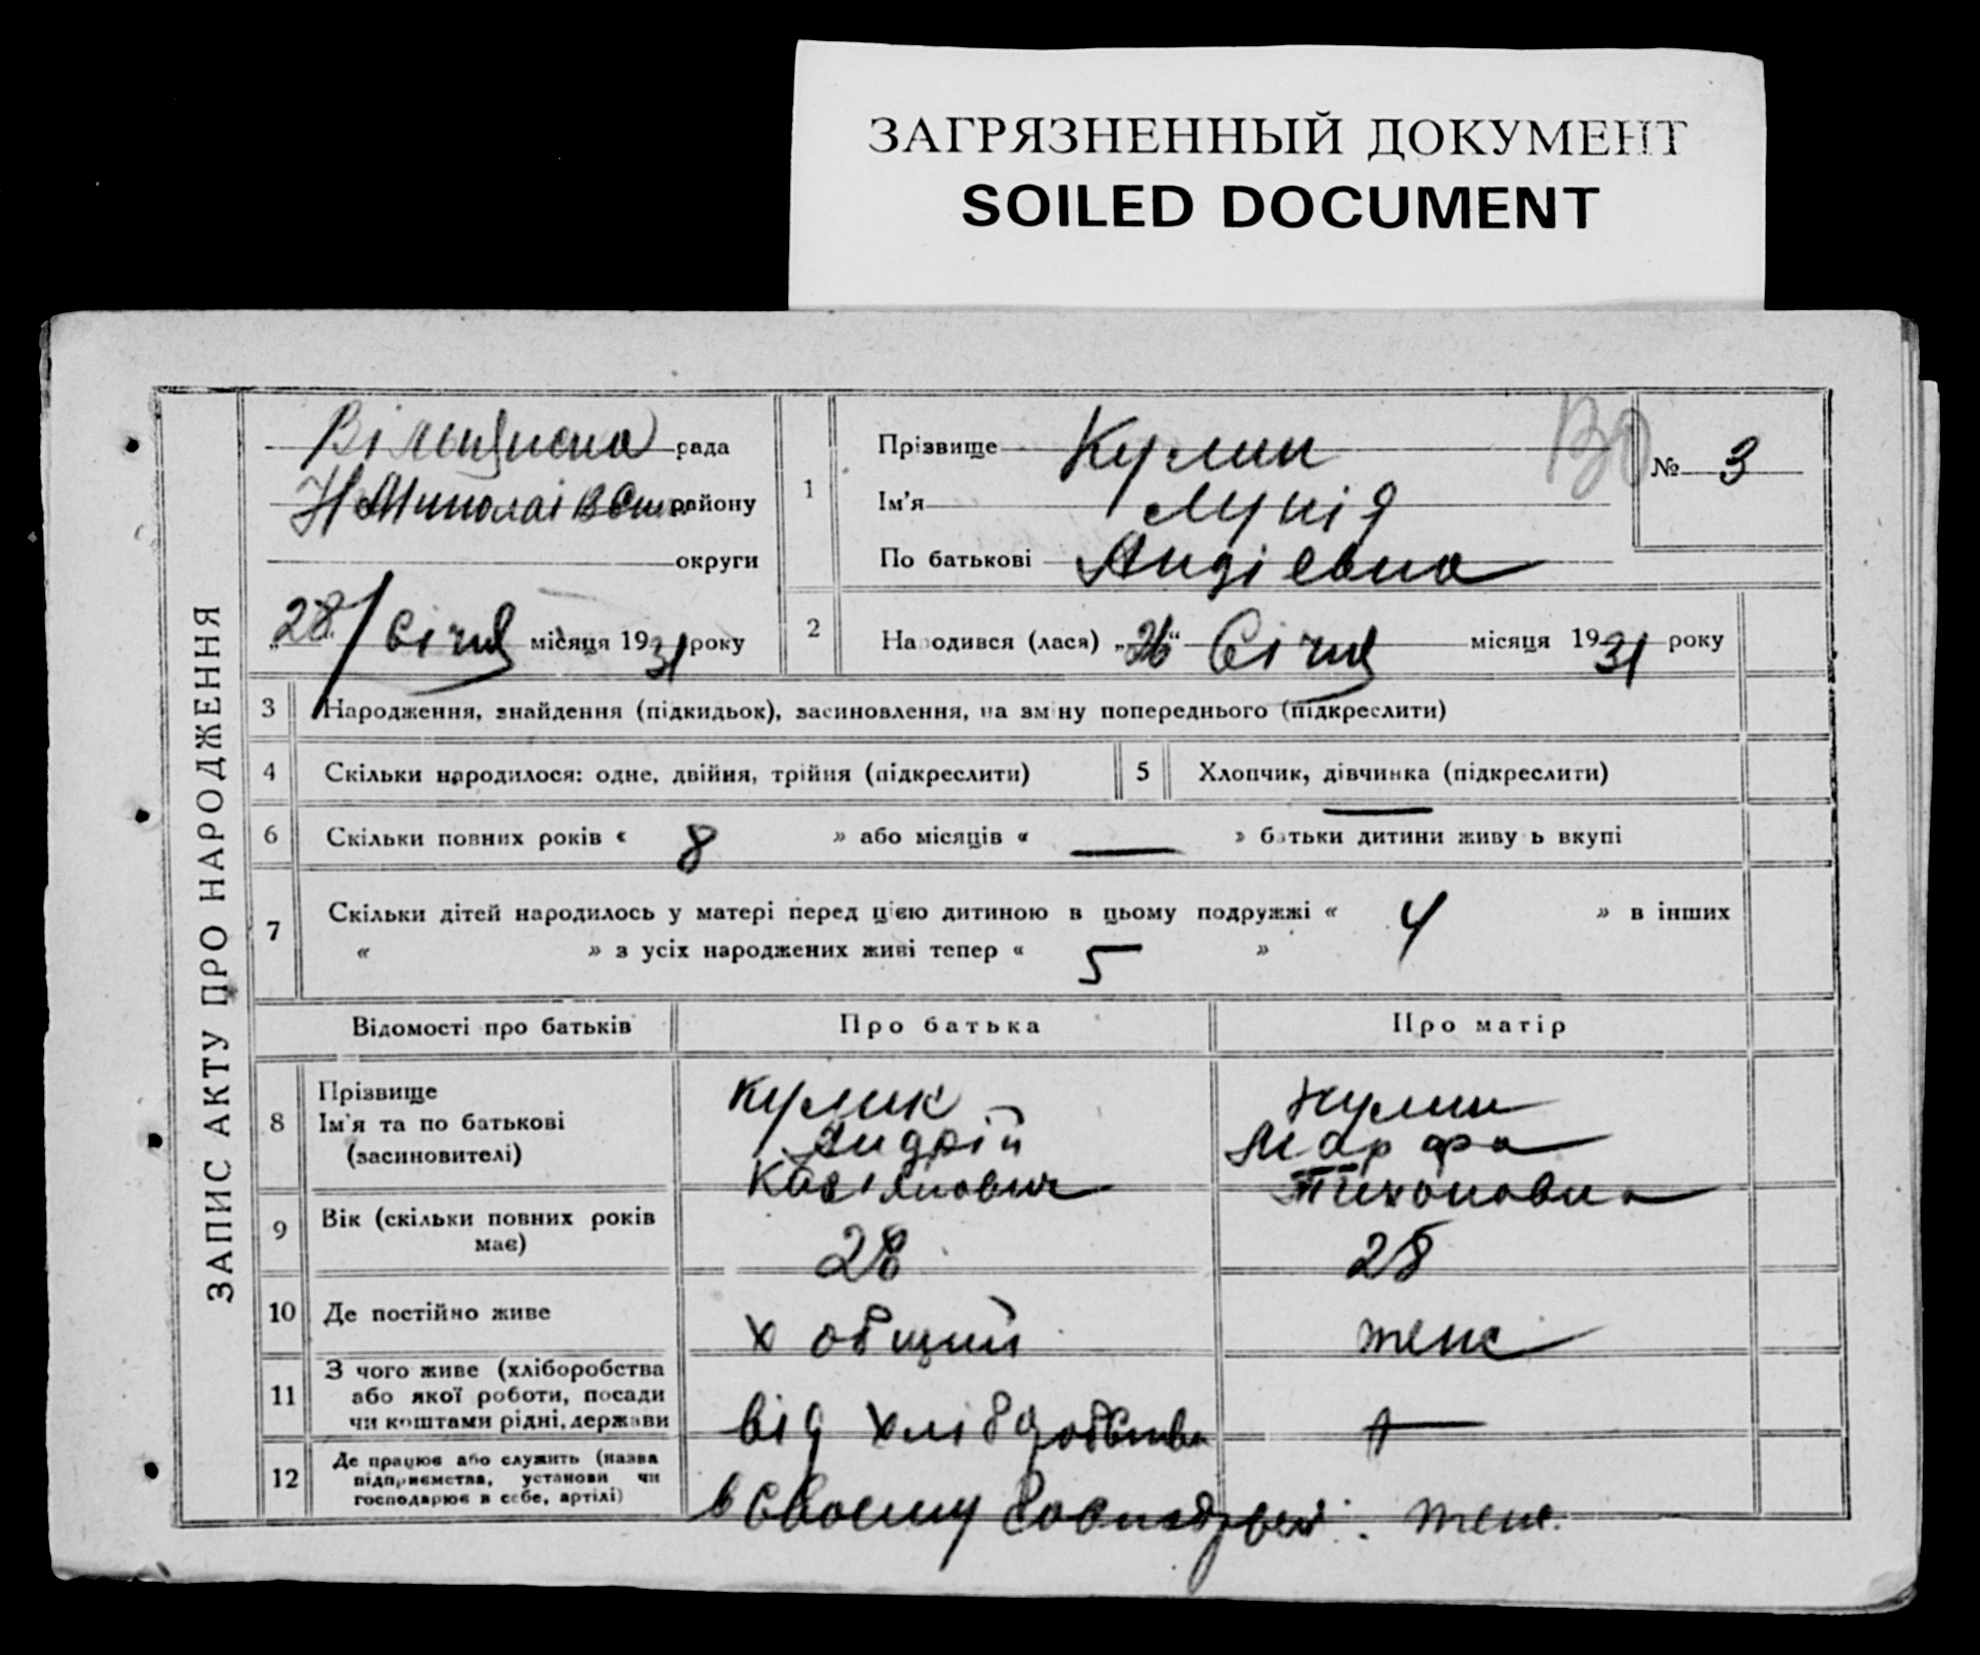 ЗАГРЯЗНЕННЫЙ ДОКУМЕНТ
SOILED DOCUMENT
ЗАПИС АКТУ ПРО НАРОДЖЕННЯ
рада
району
округи
28 Січня місяця 1931 року
1
Прізвище Кулик
Ім'я
По батькові Андієвна
№ 3
2
Народився (лася) „26“ Січня місяця 1931 року
3 Народження, знайдення (підкидьок), засиновлення, на зміну попереднього (підкреслити)
4 Скільки народилося: одне, двійня, трійня (підкреслити)
5 Хлопчик, дівчинка (підкреслити)
6 Скільки повних років « 8 » або місяців « — » батьки дитини живуть вкупі
7 Скільки дітей народилось у матері перед цією дитиною в цьому подружжі « 4 » в інших
« » з усіх народжених живі тепер « 5 »
Відомості про батьків Про батька Про матір
8 Прізвище
Ім'я та по батькові
(засиновителі)
Кулик
Андрій
Касіянович
Кулик
Марфа
Тихоновна
9 Вік (скільки повних років
має)
28 28
10 Де постійно живе
х общий теж
11 З чого живе (хліборобства
або якої роботи, посади
чи коштами рідні, держави
від хліборобства
12 Де працює або служить (назва
підприємства, установи чи
господарює в себе, артілі)
в своєму теж